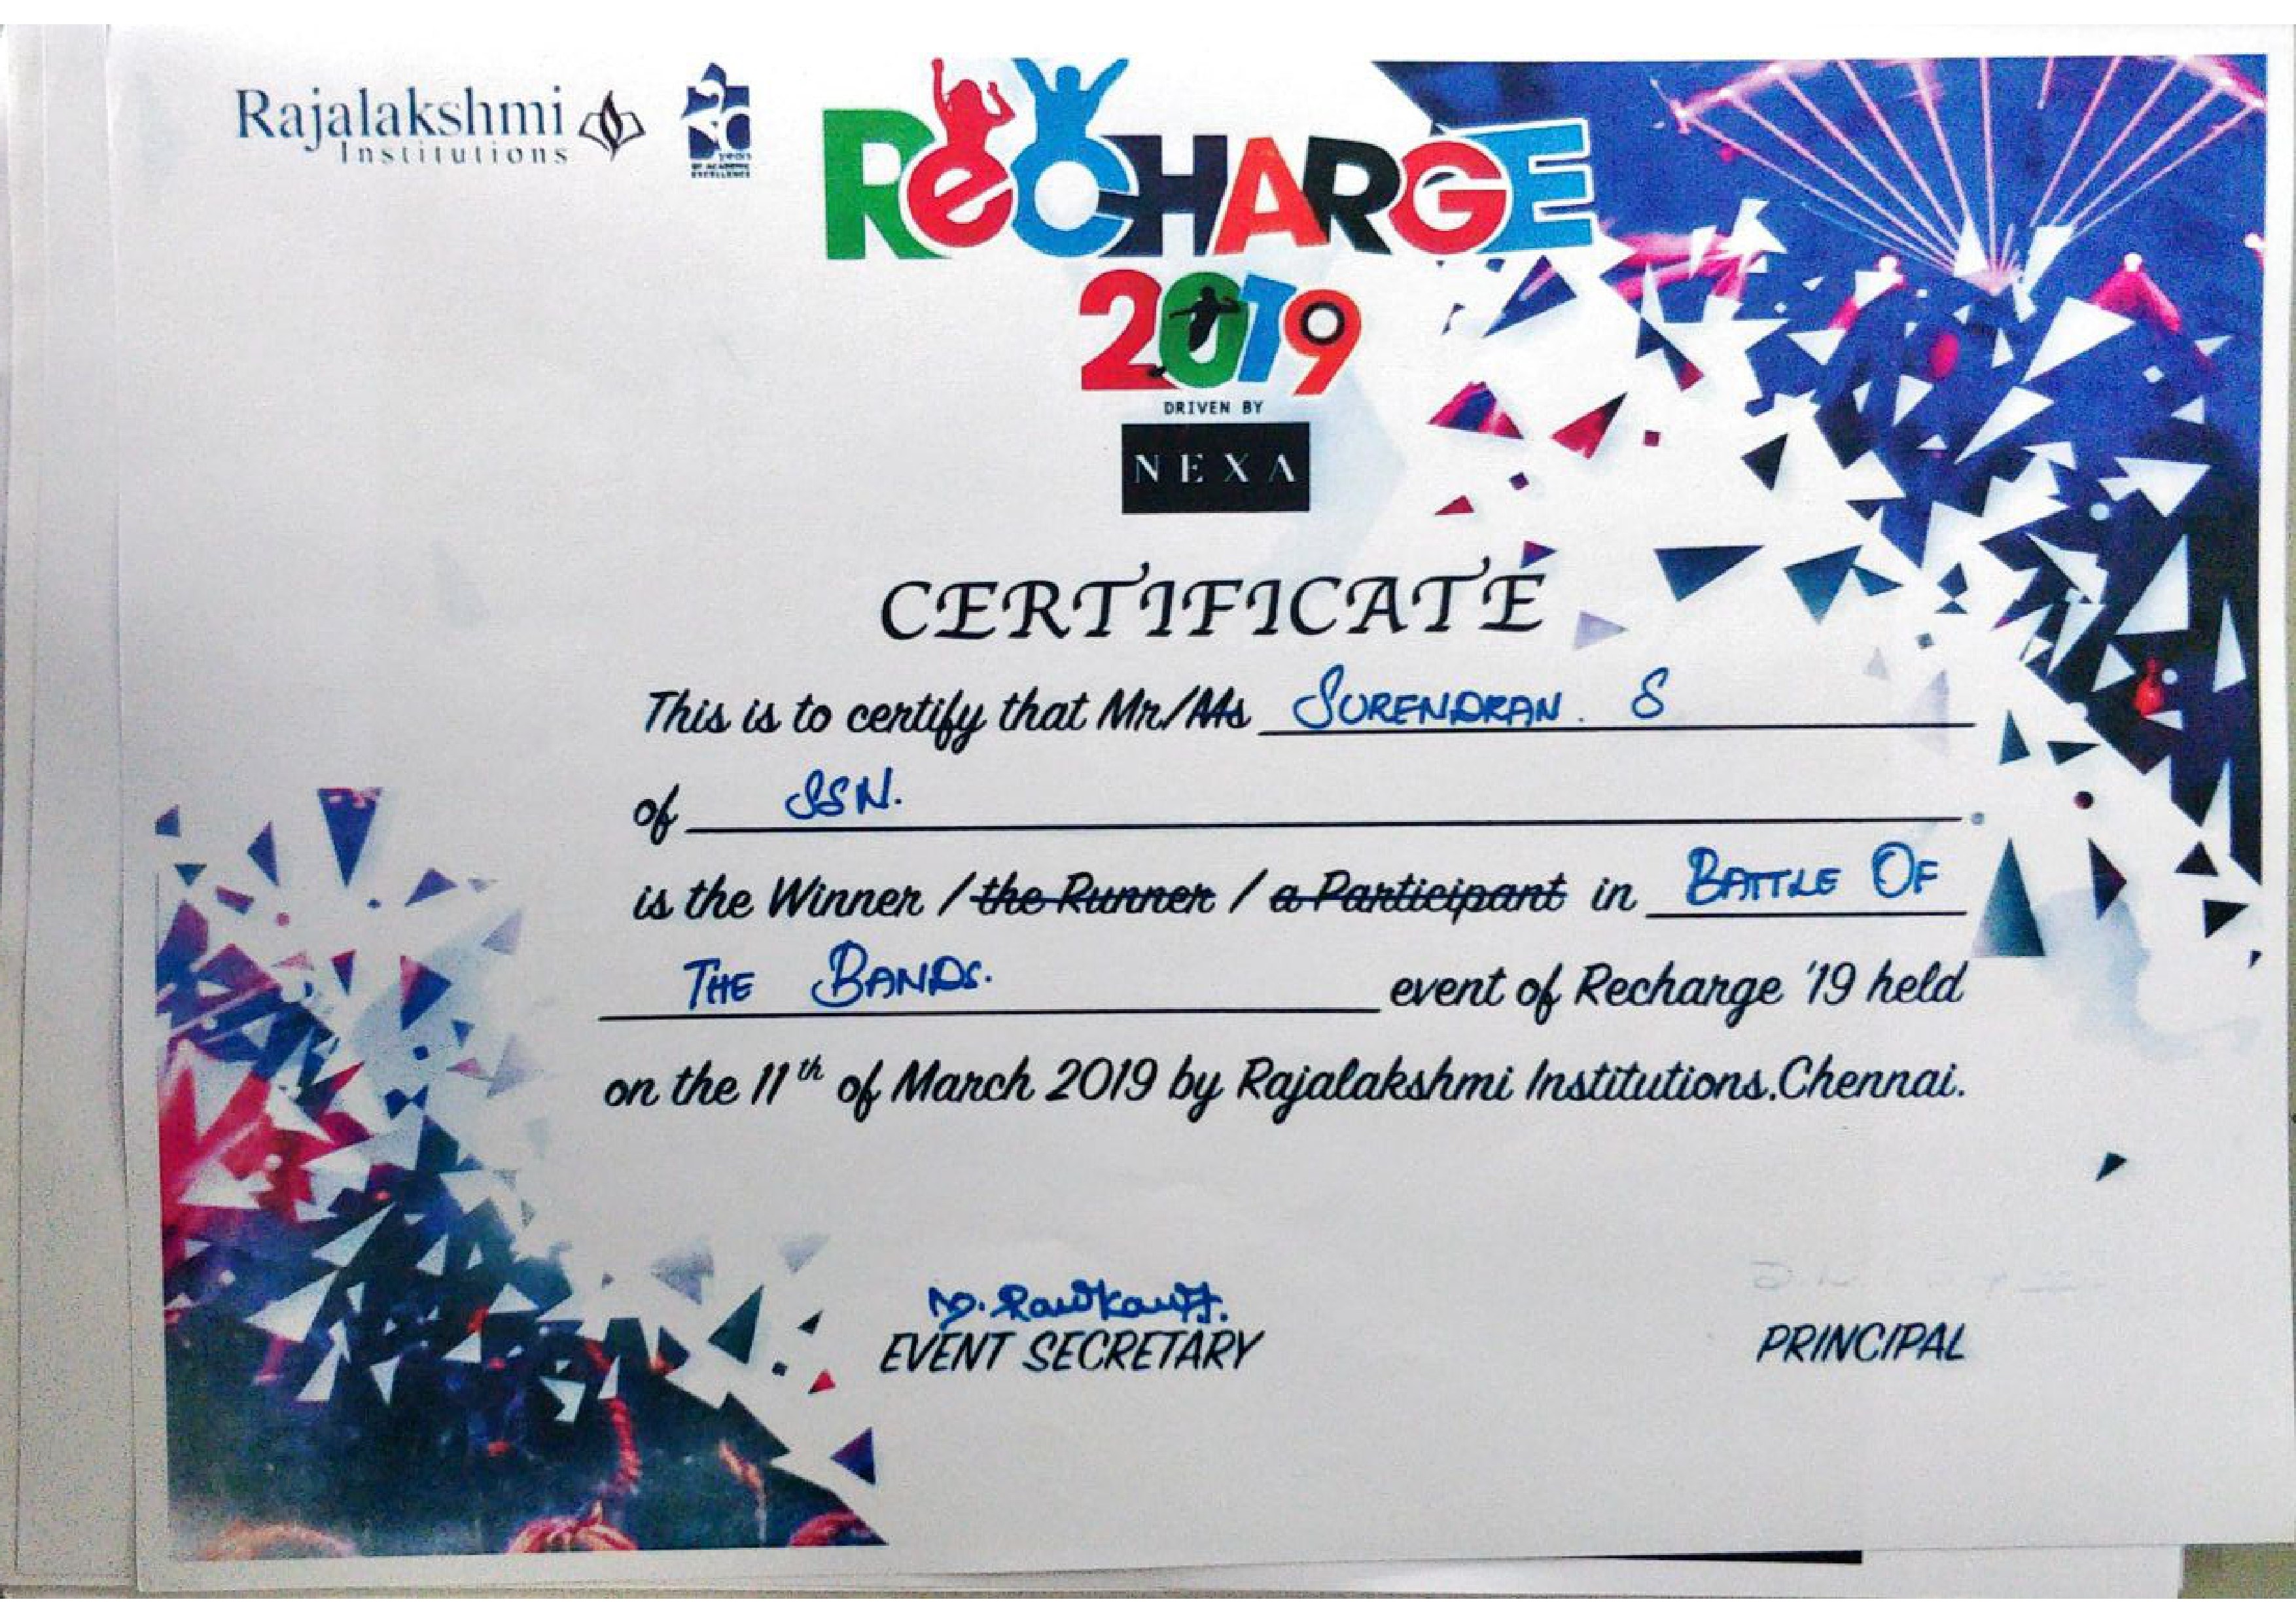 Rajalakshmi
Institutions
25
years
OF ACADEMIC
EXCELLENCE
ReCHARGE
2019
DRIVEN BY
NEXA
CERTIFICATE
This is to certify that Mr/Ms SURENDRAN. S
of SSN.
is the Winner / the Runner / a Participant in BATTLE OF
THE BANDS. event of Recharge '19 held
on the 11th of March 2019 by Rajalakshmi Institutions.Chennai.
EVENT SECRETARY
PRINCIPAL